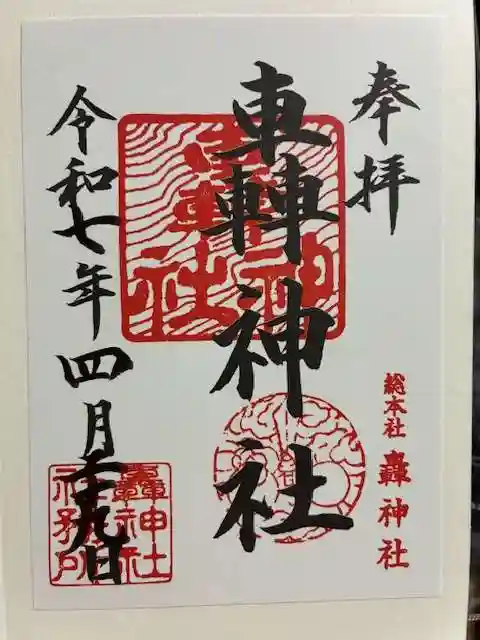 奉拝
総本社 轟神社
轟神社
轟神社
令和七年四月二十九日
轟神社
社務所